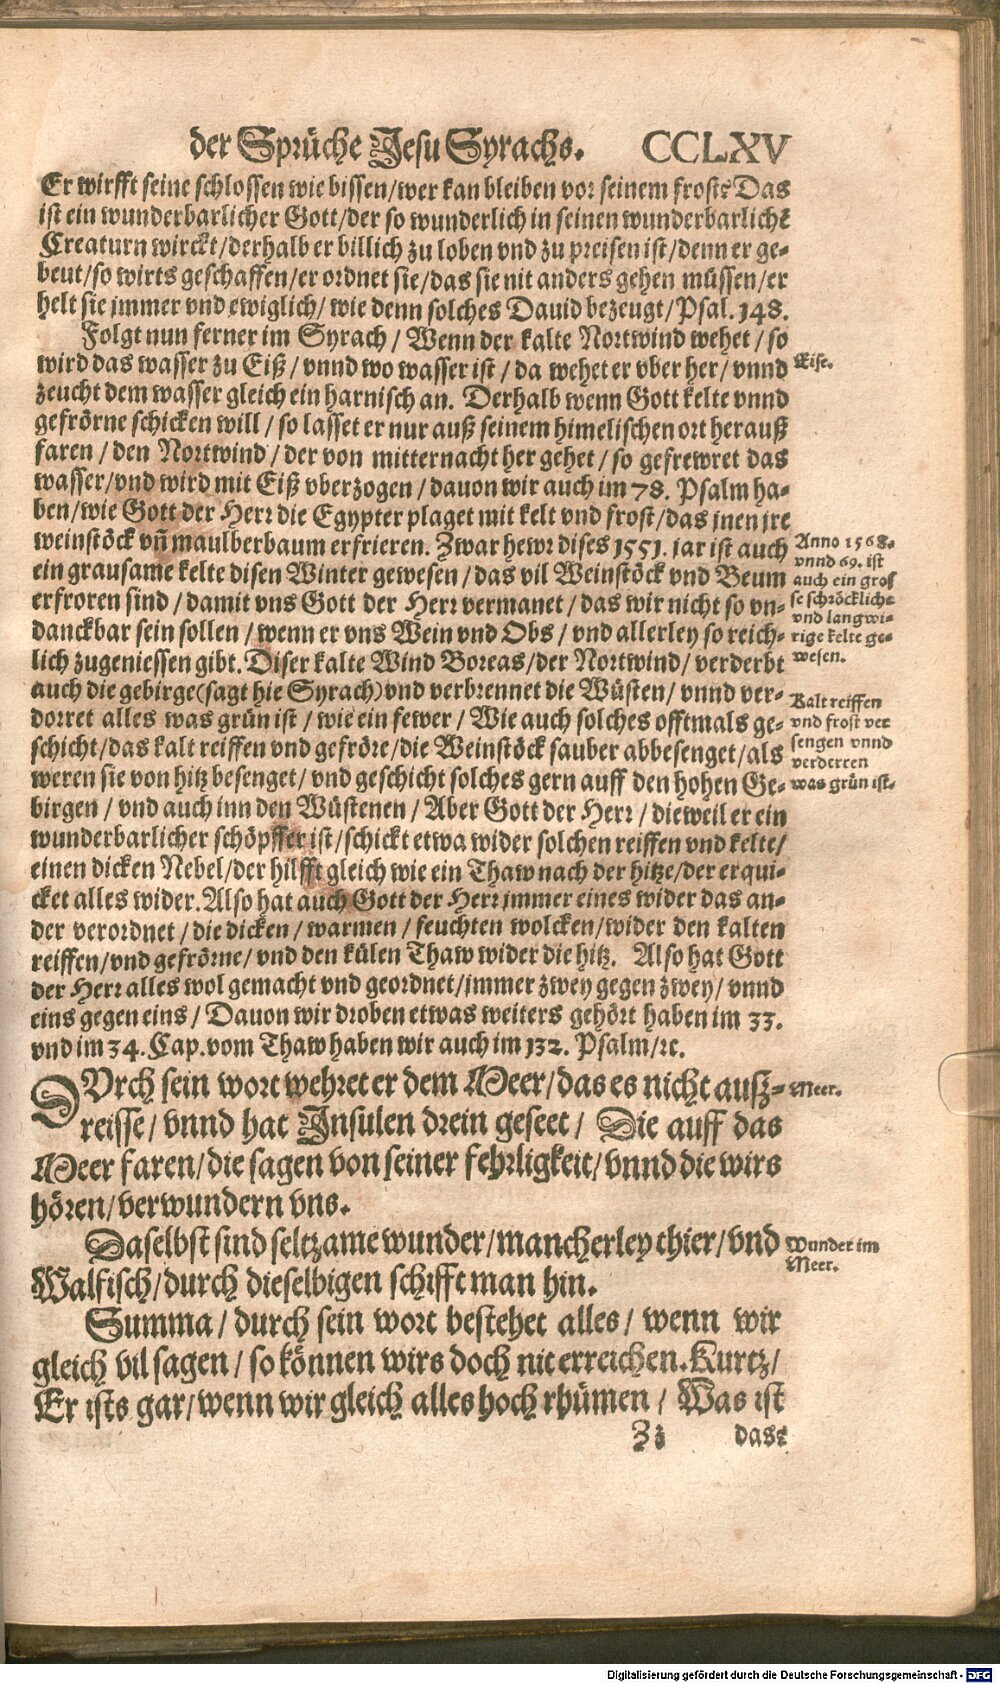 der Sprüche Jesu Syrachs. CCLXV
Er wirfft seine schlossen wie bissen/wer kan bleiben vor seinem frost? Das
ist ein wunderbarlicher Gott/der so wunderlich in seinen wunderbarlichē
Creaturn wirckt/derhalb er billich zu loben vnd zu preisen ist/denn er ge-
beut/so wirts geschaffen/er ordnet sie/das sie nit anders gehen müssen/er
helt sie jmmer vnd ewiglich/wie denn solches Dauid bezeugt/Psal. 148.
Folgt nun ferner im Syrach/Wenn der kalte Nortwind wehet/so
wird das wasser zu Eiß/vnnd wo wasser ist/da wehet er vber her/vnnd
Eise.
zeucht dem wasser gleich ein harnisch an. Derhalb wenn Gott kelte vnnd
gefrörne schicken will/so lasset er nur auß seinem himelischen ort herauß
faren/den Nortwind/der von mitternacht her gehet/so gefrewret das
wasser/vnd wird mit Eiß vberzogen/dauon wir auch im 78. Psalm ha-
ben/wie Gott der Herr die Egypter plaget mit kelt vnd frost/das jnen jre
weinstöck vñ maulberbaum erfrieren. Zwar hewr dises 1551. jar ist auch
ein grausame kelte disen Winter gewesen/das vil Weinstöck vnd Beum
erfroren sind/damit vns Gott der Herr vermanet/das wir nicht so vn-
danckbar sein sollen/wenn er vns Wein vnd Obs/vnd allerley so reich-
lich zugeniessen gibt. Diser kalte Wind Boreas/der Nortwind/verderbt
Anno 1568.
vnnd 69. ist
auch ein gros
se schröckliche
vnd langwi-
rige kelte ge-
wesen.
auch die gebirge (sagt hie Syrach) vnd verbrennet die Wüsten/vnnd ver-
dorret alles was grün ist/wie ein fewer/Wie auch solches offtmals ge-
schicht/das kalt reiffen vnd gefröre/die Weinstöck sauber abbesenget/als
weren sie von hitz besenget/vnd geschicht solches gern auff den hohen Ge-
Kalt reiffen
vnd frost ver
sengen vnnd
verderren
was grün ist.
birgen/vnd auch inn den Wüstenen/Aber Gott der Herr/dieweil er ein
wunderbarlicher schöpffer ist/schickt etwa wider solchen reiffen vnd kelte/
einen dicken Nebel/der hilfft gleich wie ein Thaw nach der hitze/der erqui-
cket alles wider. Also hat auch Gott der Herr jmmer eines wider das an-
der verordnet/die dicken/warmen/feuchten wolcken/wider den kalten
reiffen/vnd gefrörne/vnd den külen Thaw wider die hitz. Also hat Gott
der Herr alles wol gemacht vnd geordnet/jmmer zwey gegen zwey/vnnd
eins gegen eins/Dauon wir droben etwas weiters gehört haben im 33.
vnd im 34. Cap. vom Thaw haben wir auch im 132. Psalm/rc.
DVrch sein wort wehret er dem Meer/das es nicht auß-
Meer.
reisse/vnnd hat Insulen drein geseet/Die auff das
Meer faren/die sagen von seiner fehrligkeit/vnnd die wirs
hören/verwundern vns.
Daselbst sind seltzame wunder/mancherley thier/vnd
Wunder im
Meer.
Walfisch/durch dieselbigen schifft man hin.
Summa/durch sein wort bestehet alles/wenn wir
gleich vil sagen/so können wirs doch nit erreichen. Kurtz/
Er ists gar/wenn wir gleich alles hoch rhümen/Was ist
Zz das?
Digitalisierung gefördert durch die Deutsche Forschungsgemeinschaft - DFG